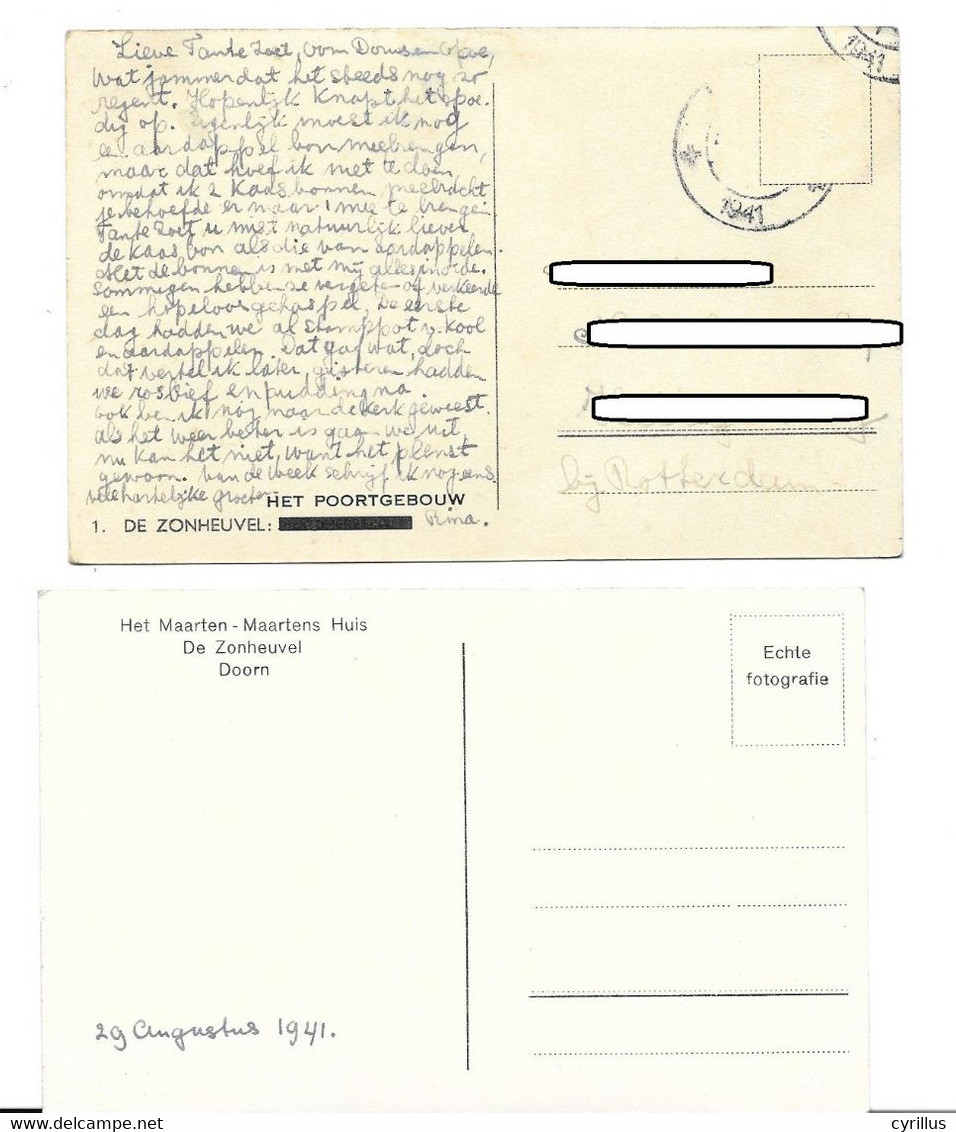 Lieve Tante Zoet, Oom Doms en Opoe,
Wat jammer dat het steeds nog zo
regent. Hopenlijk Knapt het spoe-
dig op. Eigenlijk moest ik nog
een aardappel bon meebrengen,
maar dat hoef ik niet te doen,
omdat ik 2 Kaasbonnen meebracht
je behoefde er maar 1 mee te brengen
Tante Zoet u mist natuurlijk liever
de kaas bon als die van aardappelen.
Met de bonnen is met mij alles in orde.
Sommigen hebben ze vergeten of verkeerde
een hopeloos gehaspel. De eerste
dag hadden we al stamppot v. kool
en aardappelen. Dat gaf wat, doch
dat vertel ik later, gisteren hadden
we rosbief en pudding na.
ook ben ik nog naar de kerk geweest.
als het weer beter is gaan we uit,
nu kan het niet, want het plenst
gewoon. Van de week schrijf ik nog eens.
vele hartelijke groeten
Rina.
HET POORTGEBOUW
1. DE ZONHEUVEL:
1941
1941
bij Rotterdam
Het Maarten - Maartens Huis
De Zonheuvel
Doorn
Echte
fotografie
29 Augustus 1941.
cyrillus